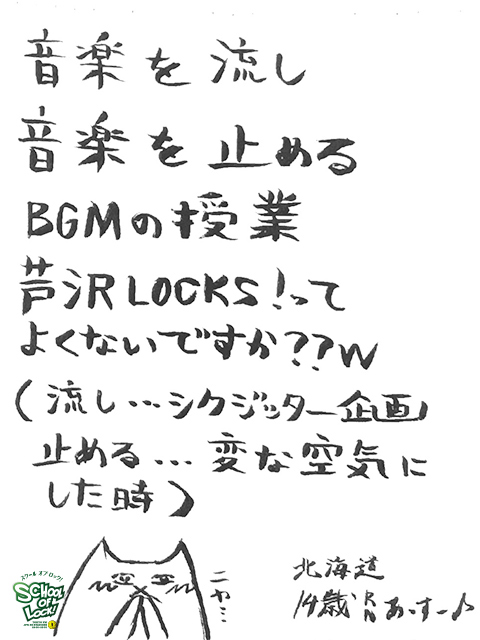 音楽を流し
音楽を止める
BGMの授業
芦沢LOCKS!って
よくないですか??w
(流し…シクジッター企画
止める…変な空気に
した時)
ニヤ…
北海道
14歳 RN あっすー♪
スクール オブ ロック!
SCHOOL OF LOCK!